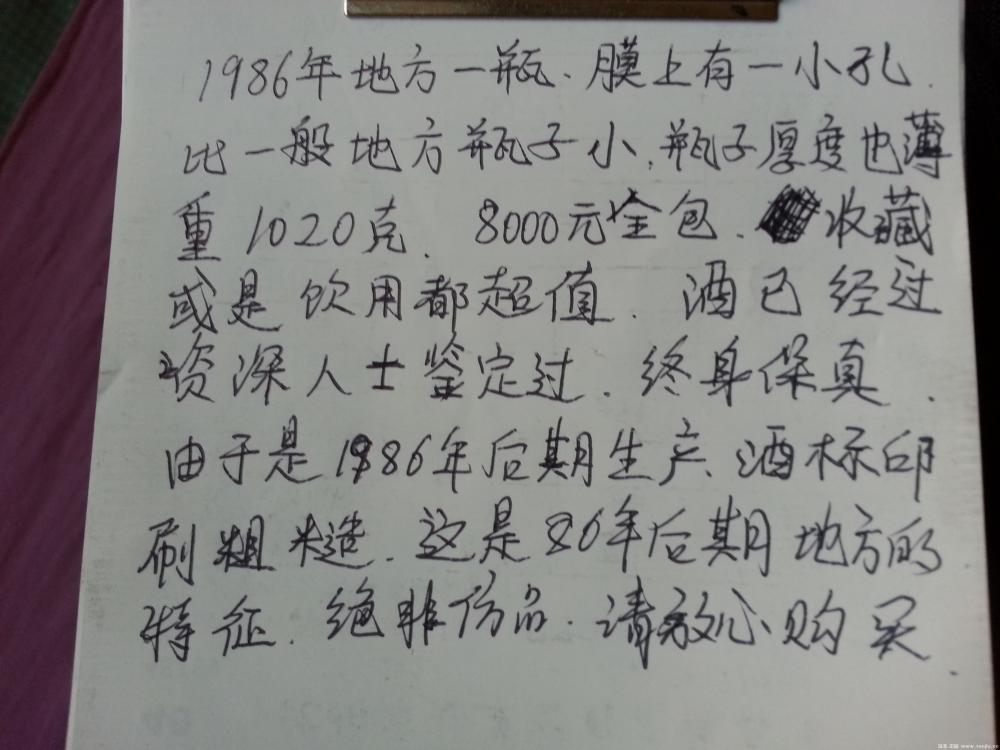 1986年地方一瓶、膜上有一小孔.
比一般地方瓶子小,瓶子厚度也薄
重1020克. 8000元全包. 收藏
或是饮用都超值. 酒已经过
资深人士鉴定过. 终身保真.
由于是1986年后期生产、酒标印
刷粗糙. 这是86年后期地方的
特征. 绝非伪品. 请放心购买.